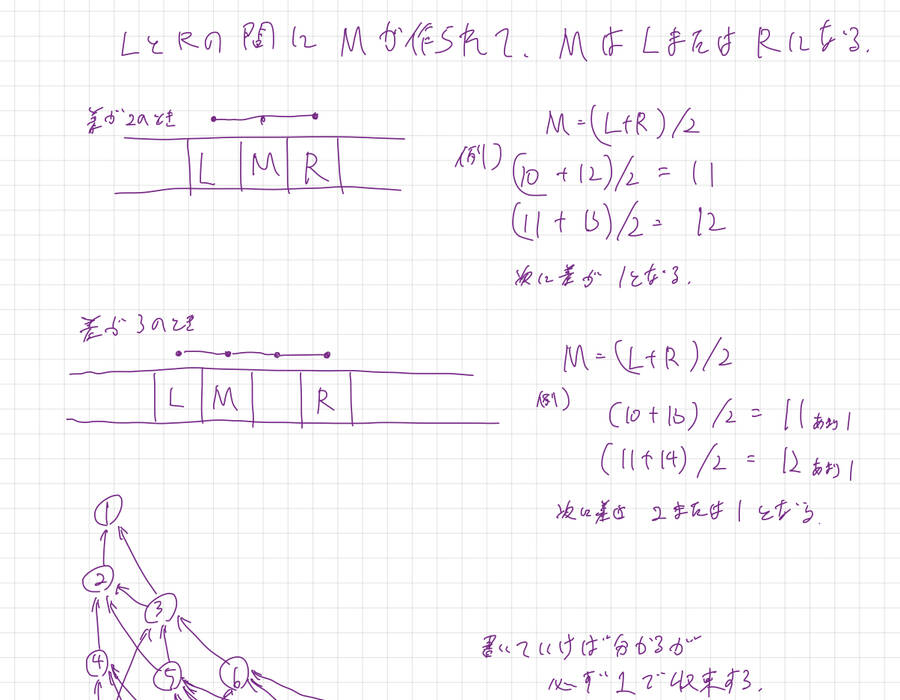 LとRの間にMが作られて、MはLまたはRになる.
差が2のとき
L M R
M=(L+R)/2
例)
(10+12)/2 = 11
(11+13)/2= 12
次に差が1となる.
差が3のとき
L M R
M=(L+R)/2
例)
(10+13)/2 = 11あまり1
(11+14)/2 = 12あまり1
次に差は2または1となる.
1
2
3
4
5
6
書いていけば分かるが
必ず1で収束する.